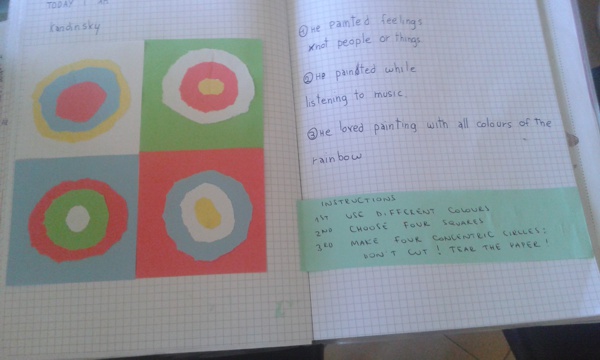 TODAY I AM
Kandinsky
① He painted feelings
not people or things.
② He paindted while
listening to music.
③ He loved painting with all colours of the
rainbow
INSTRUCTIONS
1ST USE DIFFERENT COLOURS
2ND CHOOSE FOUR SQUARES
3RD MAKE FOUR CONCENTRIC CIRCLES:
DON'T CUT! TEAR THE PAPER!